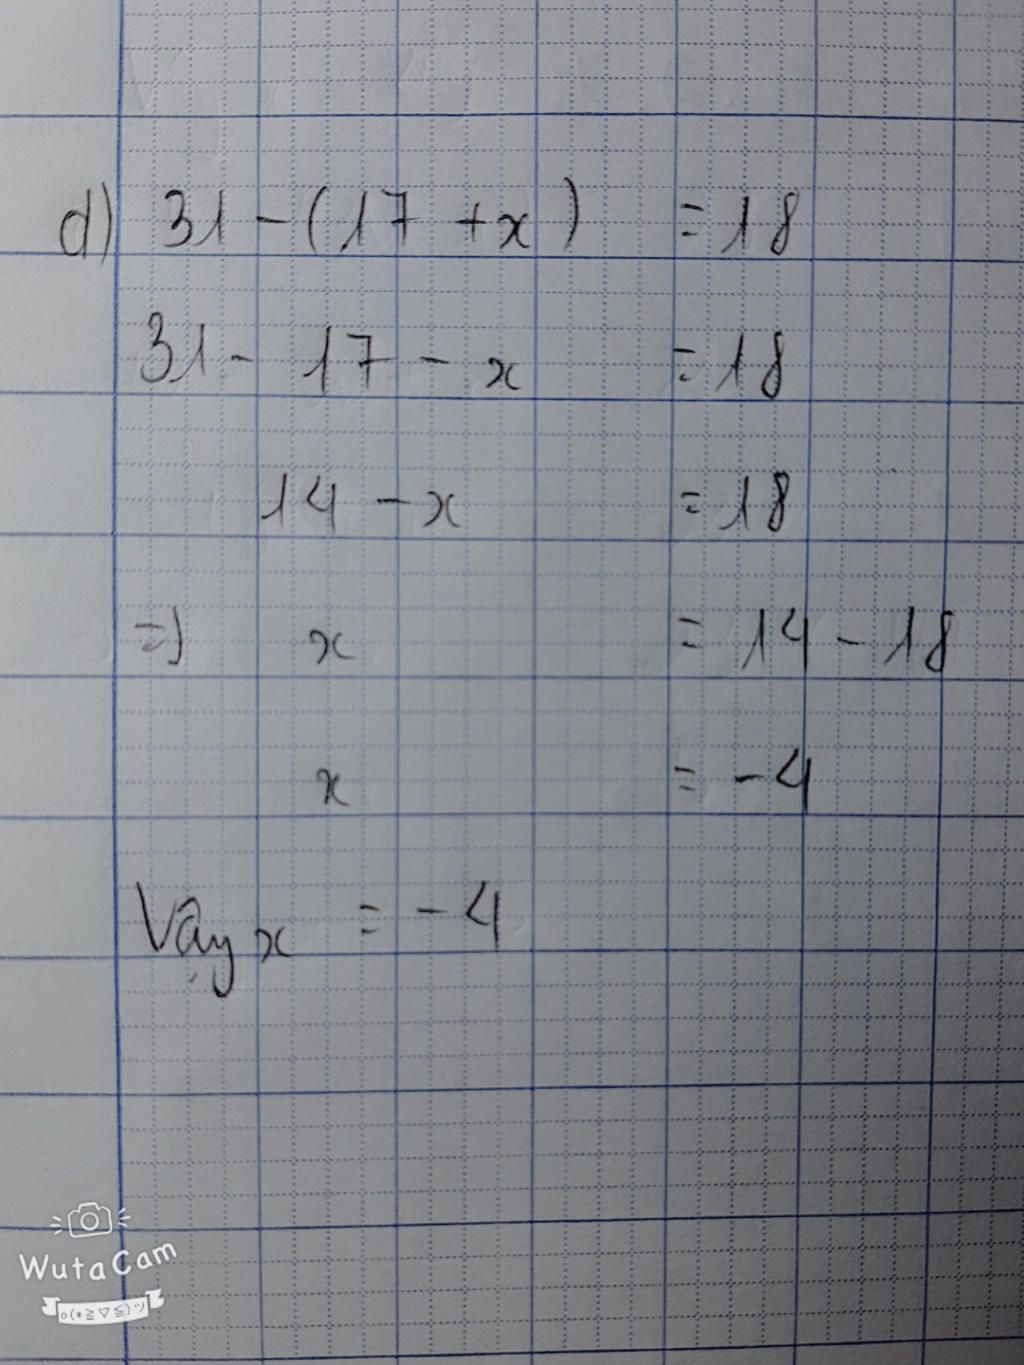 d) 31 - (17 + x) = 18
31 - 17 - x = 18
14 - x = 18
=> x = 14 - 18
x = -4
Vậy x = -4
WutaCam
o(*≧▽≦)ツ